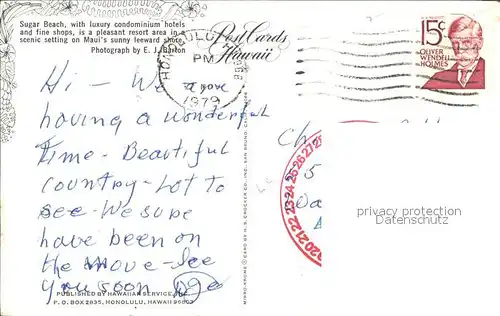 Sugar Beach, with luxury condominium hotels
and fine shops, is a pleasant resort area in a
scenic setting on Maui's sunny leeward shore.
Photograph by E. J. Barton
Post Cards
Hawaii
HONOLULU
PM
1979
15c
OLIVER
WENDELL
HOLMES
Hi - We are
having a wonderful
time - Beautiful
country - Lot to
see - We sure
have been on
the move - See
you soon
privacy protection
Oldthing.com
PUBLISHED BY HAWAIIAN SERVICE, INC.
P. O. BOX 2835, HONOLULU, HAWAII 96803